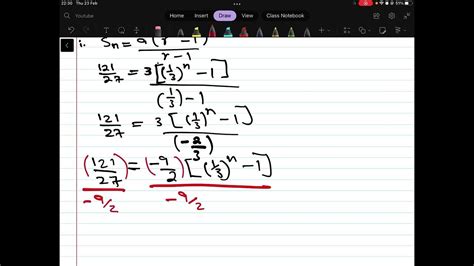 22:30 Thu 23 Feb
Home Insert Draw View Class Notebook
i. Sn = a(r^n - 1) / r - 1
121/27 = 3[(1/3)^n - 1] / (1/3) - 1
121/27 = 3[(1/3)^n - 1] / (-2/3)
(121/27) = (-9/2)[(1/3)^n - 1]
-9/2 -9/2